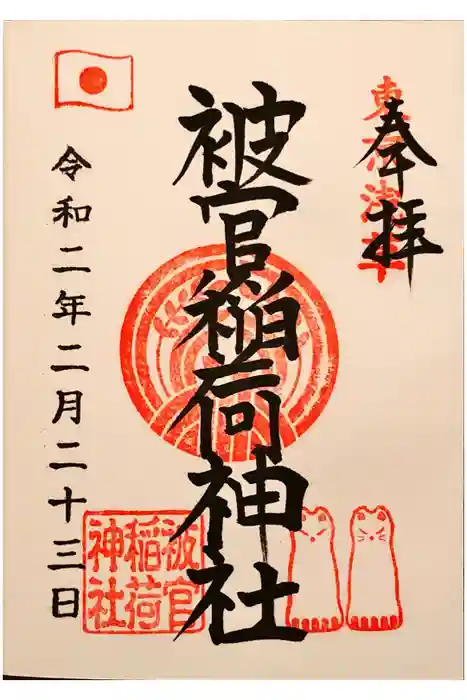 奉拝
東京浅草
被官稲荷神社
被官
稲荷
神社
令和二年二月二十三日